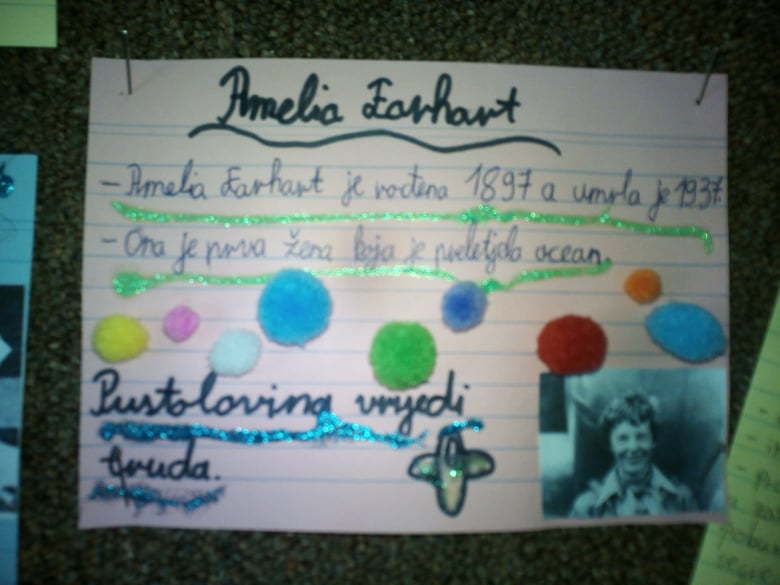 Amelia Earhart
- Amelia Earhart je rođena 1897 a umrla je 1937.
- Ona je prva žena koja je preletjela ocean.
Pustolovina vrijedi
truda.